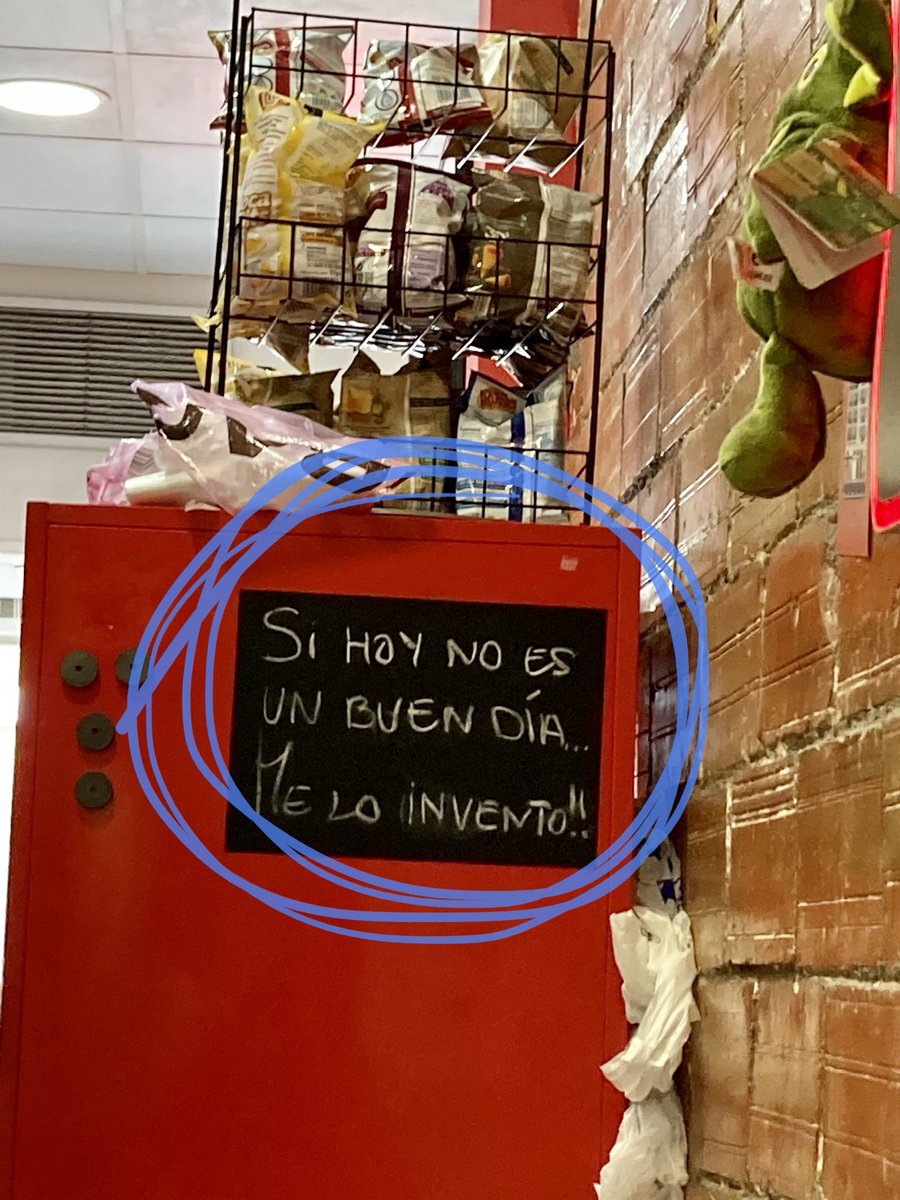 Si HOY NO ES
UN BUEN DÍA...
ME LO iNVENTO!!